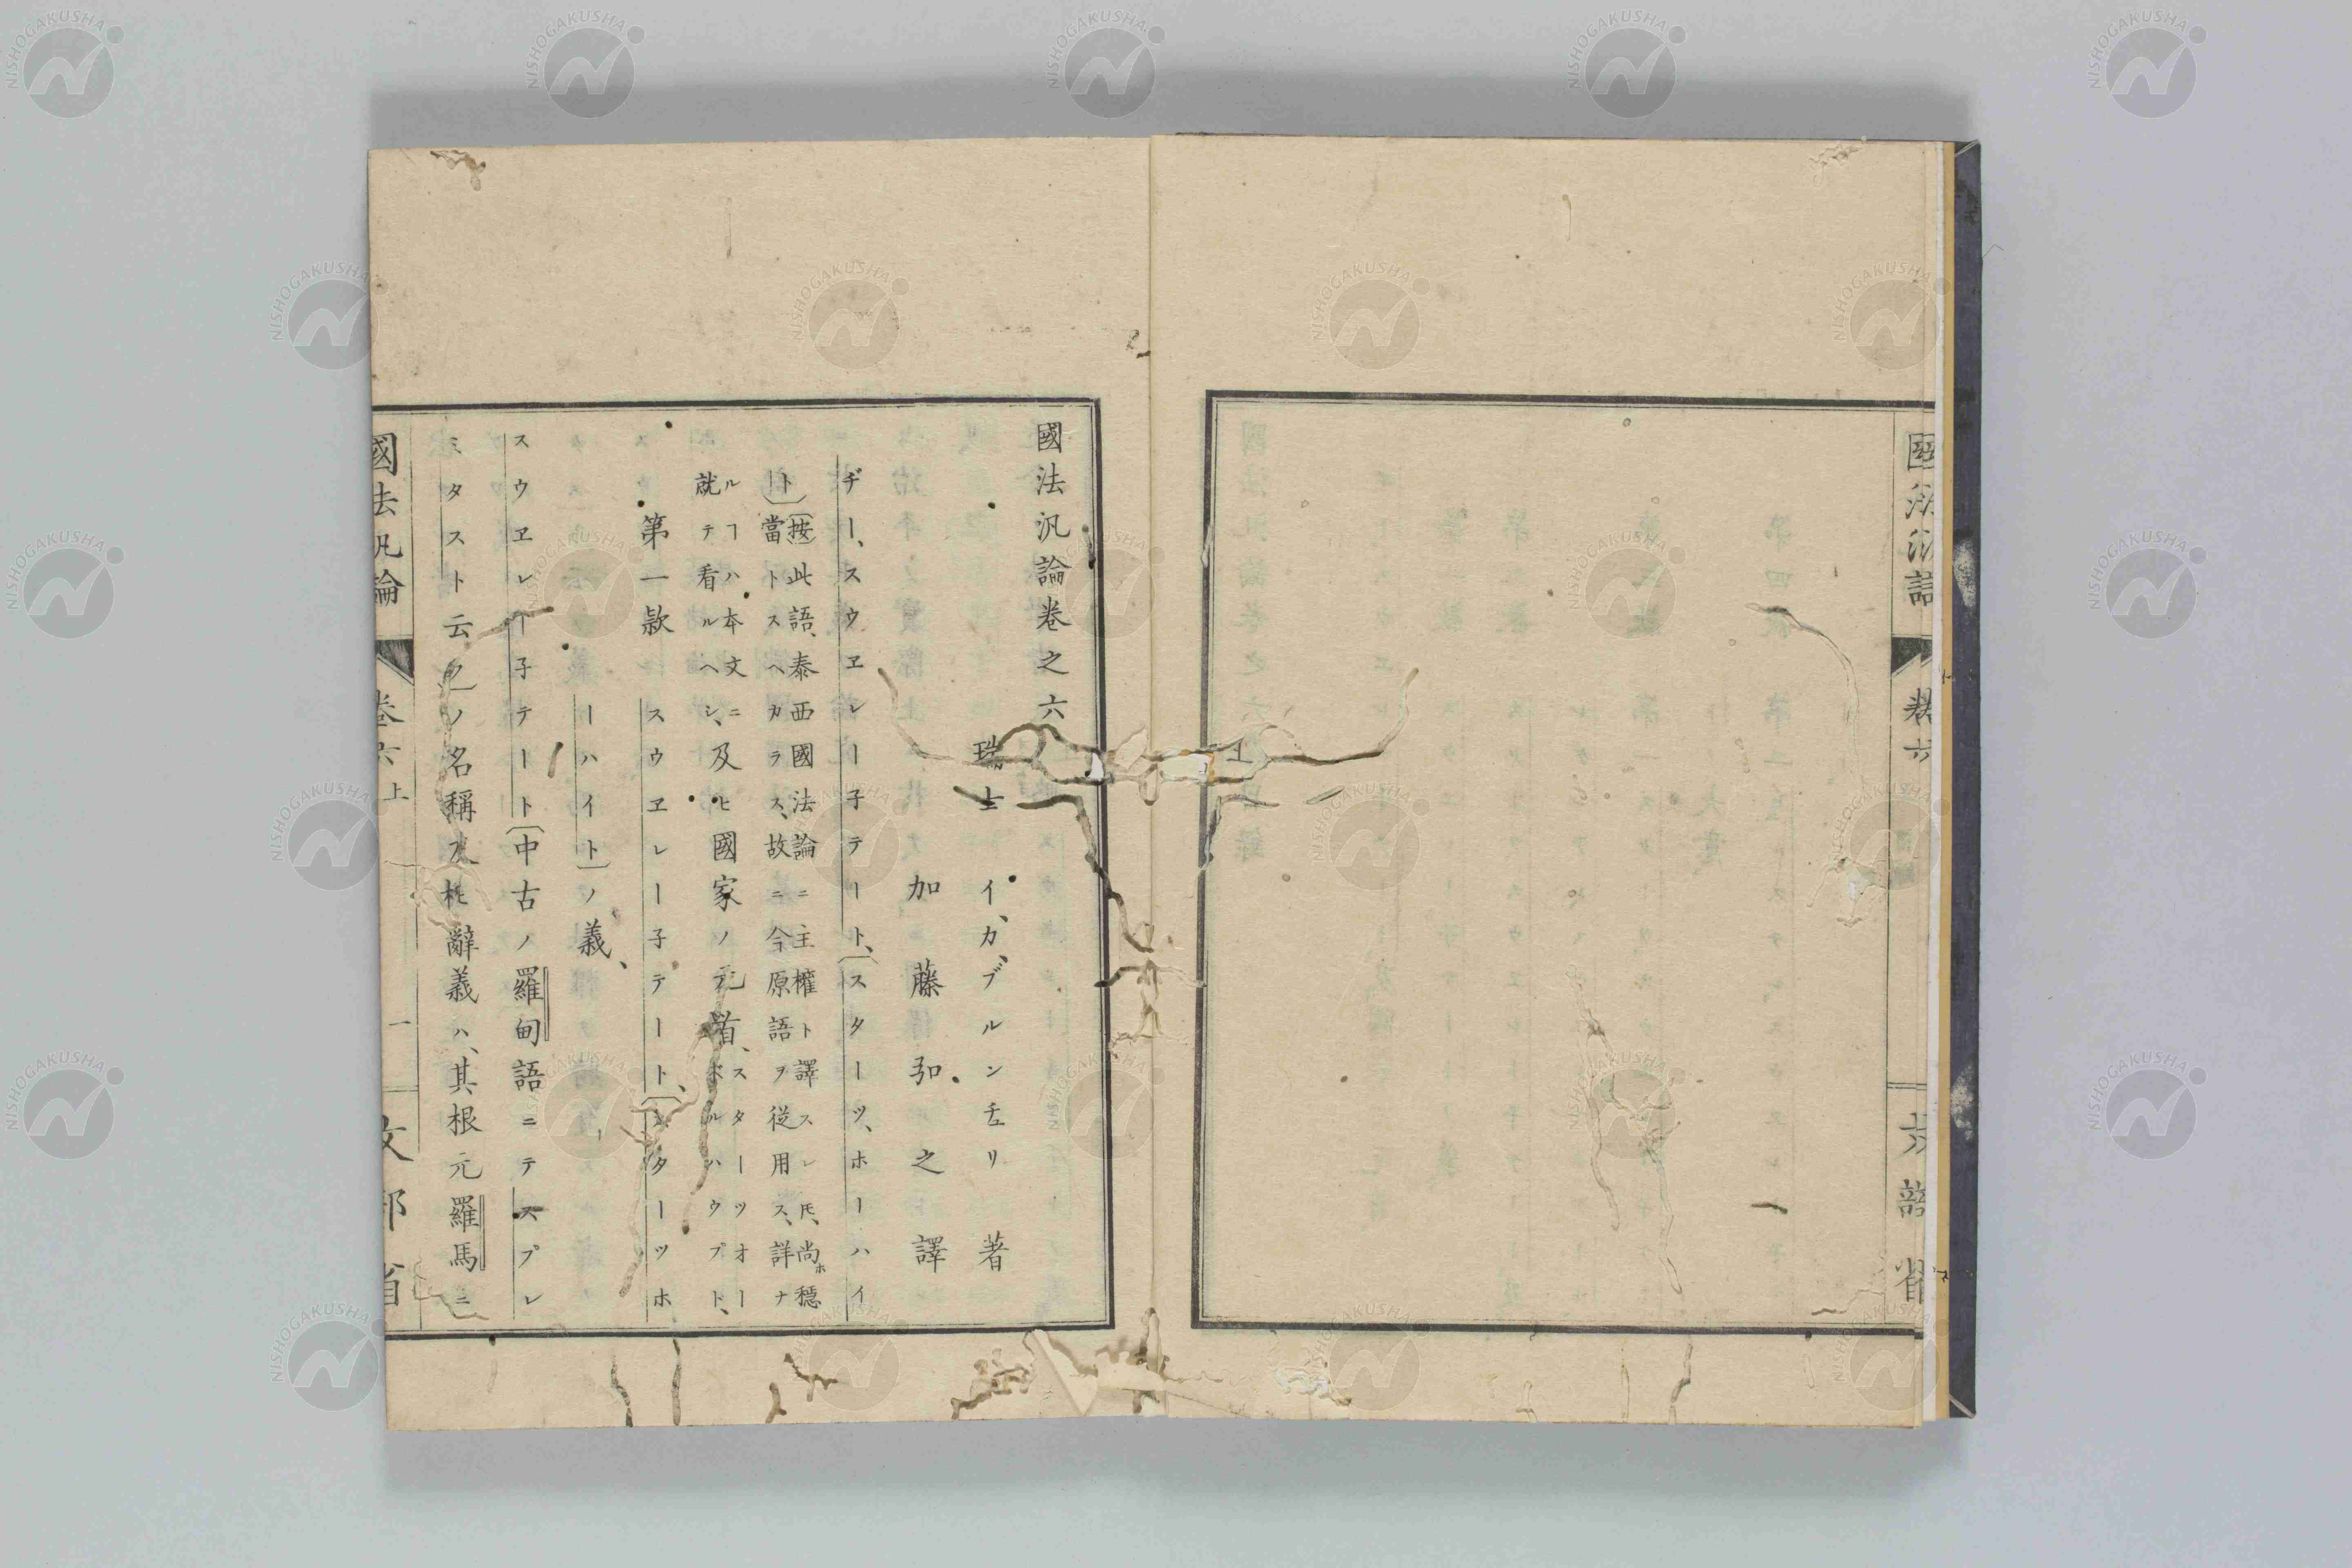 國法汎論卷之六
瑞士 イ、カ、ブルンチェリ 著
加藤弘之 譯
ヂー、スウヱレー子テート、(スターツ、ホーハイ
ト)(按)此語、泰西國法論ニ主權ト譯スレ𪜈、尚ホ穏
當トスヘカラス、故ニ今原語ヲ從用ス、詳ナ
ルヿハ本文ニ
就テ看ルヘシ、及ヒ國家ノ元首、スターツオー
ボルハウプト、
第一款 スウヱレー子テート、(スターツホ
ーハイト)ノ義、
スウヱレー子テート(中古ノ羅甸語ニテスプレ
ミタスト云フ)ノ名稱及ヒ辭義ハ、其根元羅馬ニ
國法汎論 卷六上 一 文部省
國法汎論 卷六
省
NISHOGAKUSHA